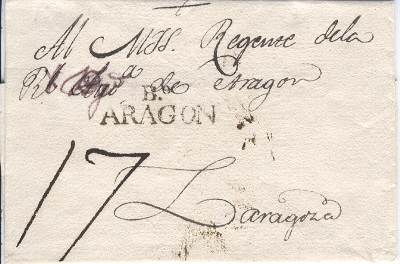 Al M. Regente de la
Rl Aga de Aragon
B.º
ARAGON
17
Zaragoza